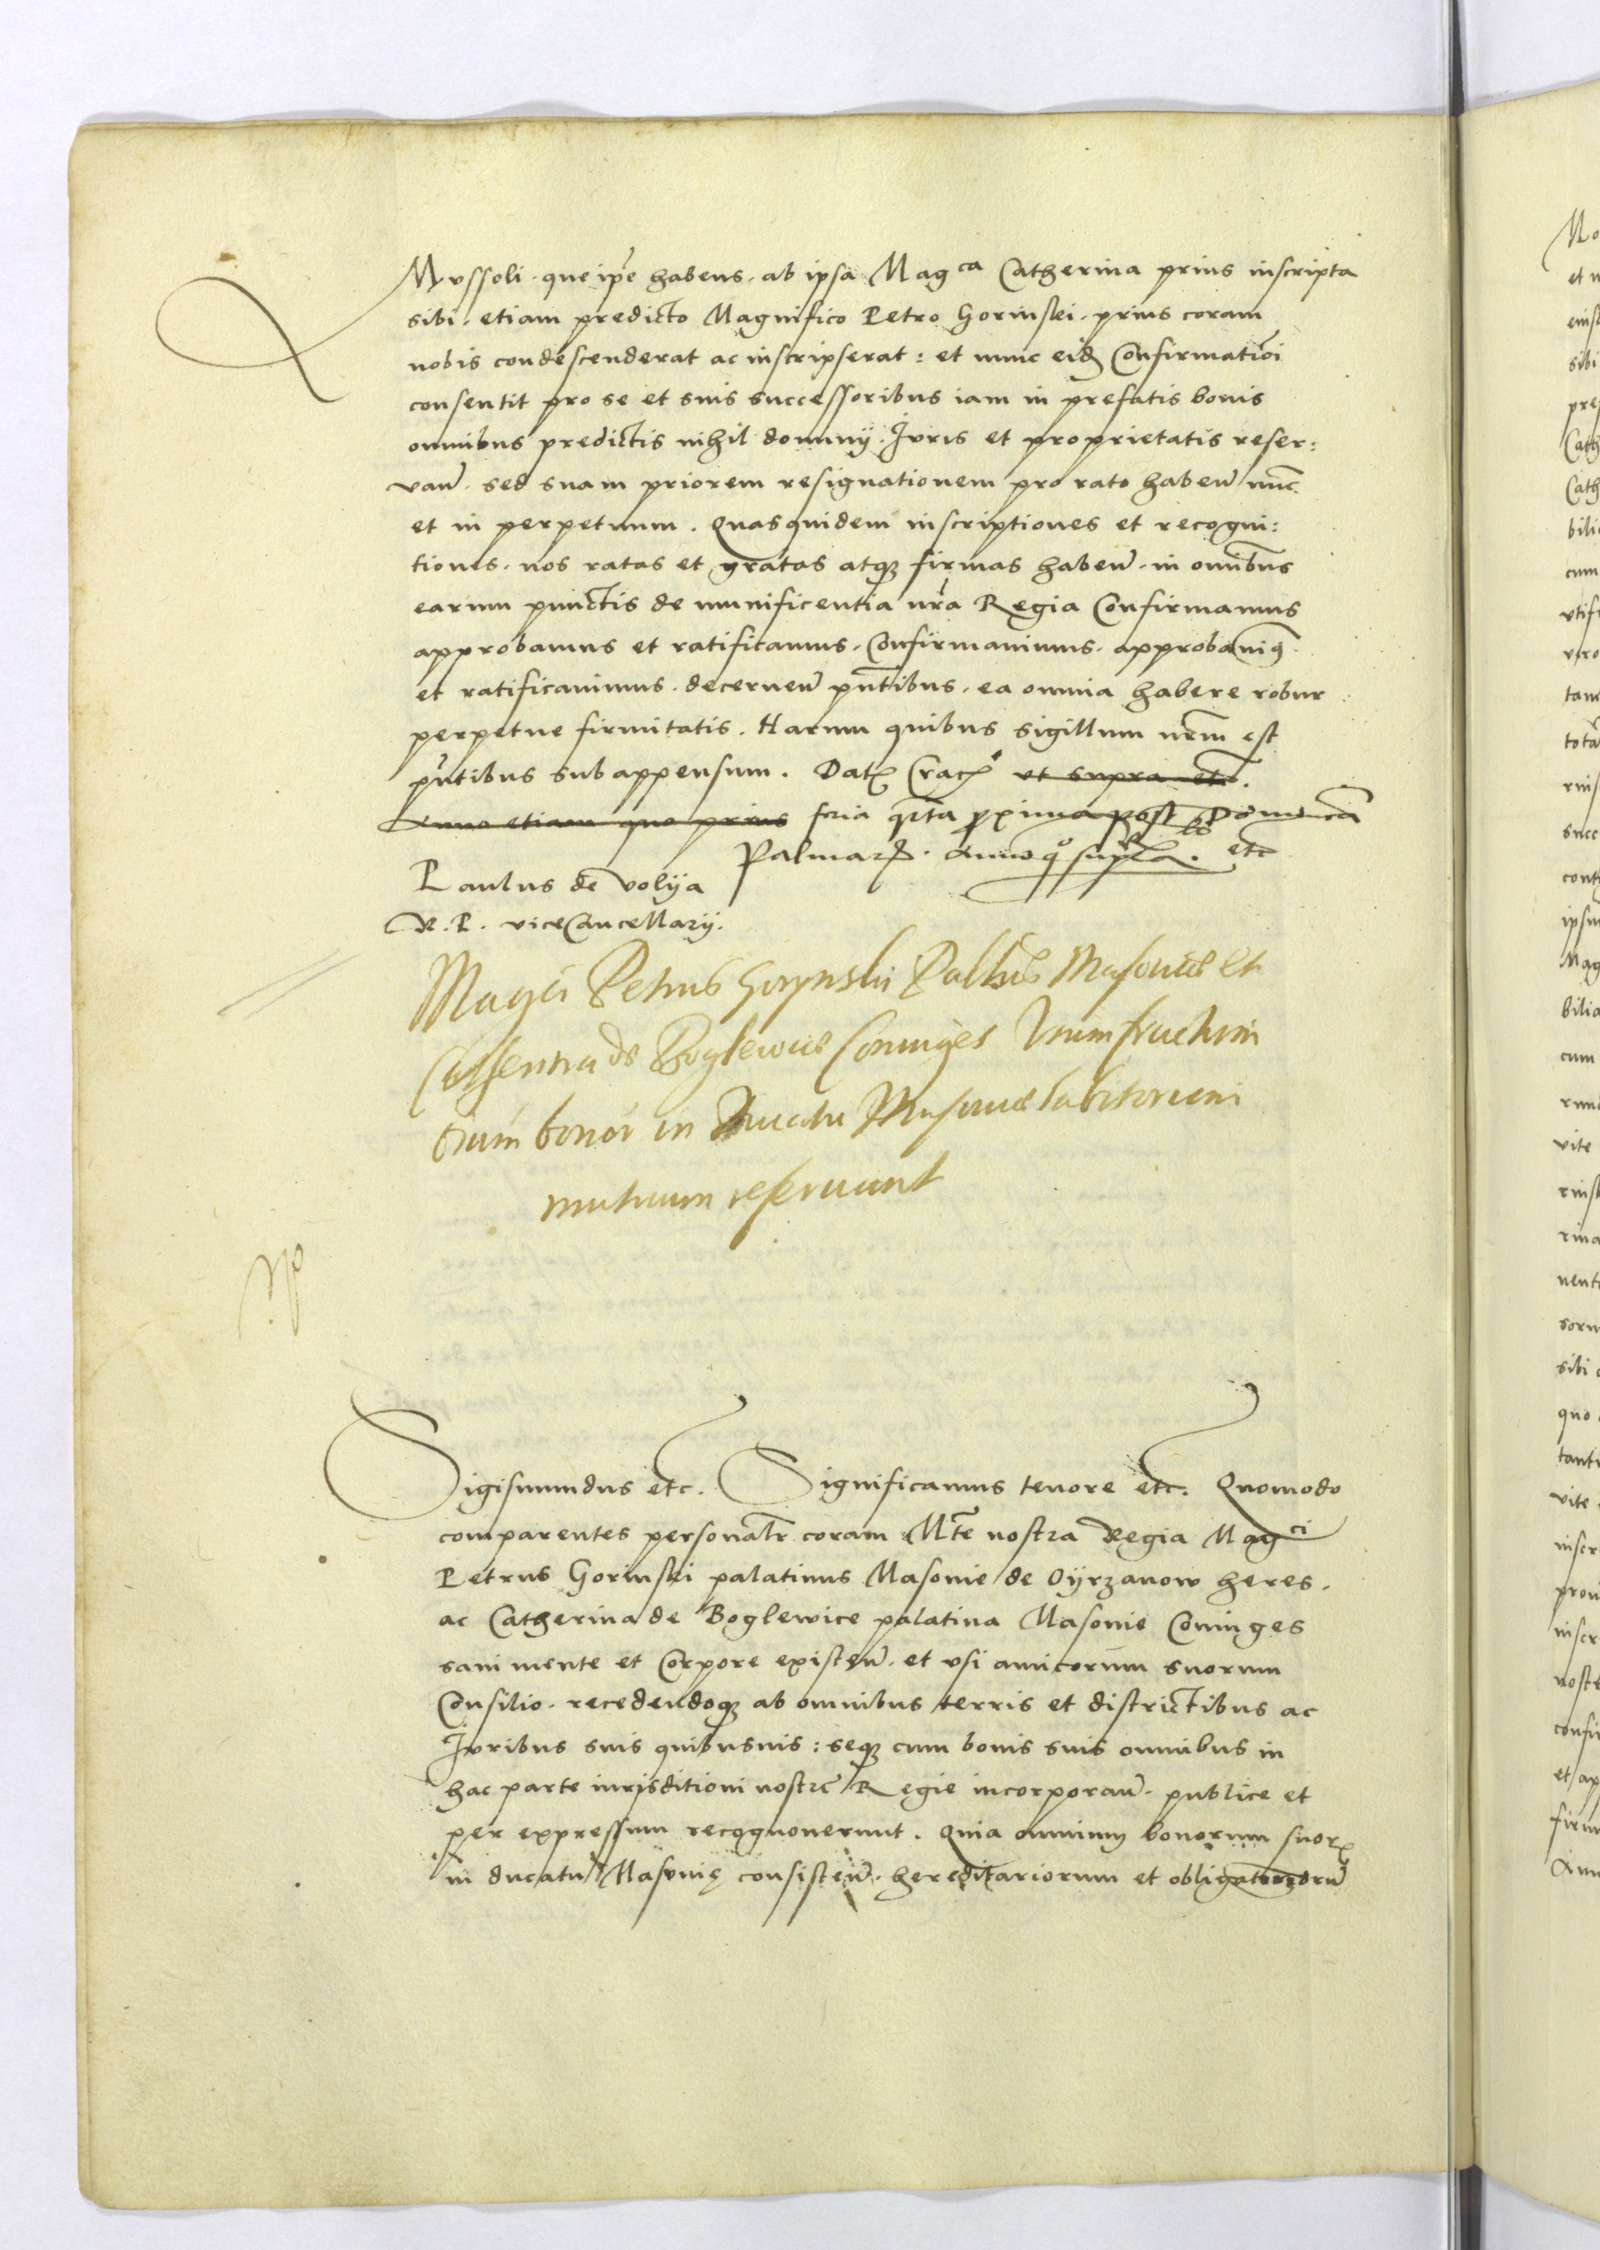 Mussoli. que ip̄e habens. ab ipsa Mag ca Catherina prius inscripta
sibi. etiam predicto Magnifico Petro Gorinski. prius coram
nobis condescenderat ac inscripserat: et nunc eidē Confirmatiōi
consentit pro se et suis successoribus iam in prefatis bonis
omnibus predictis nihil dominij. Juris et proprietatis reser:
vaň. sed suam priorem resignationem pro rato habeň nūc
et in perpetuum. Quasquidem inscriptiones et recogni:
tiones. nos ratas et gratas atqꝫ firmas habeň. in omnībus
earum punctis de munificentia nr̄a Regia Confirmamus
approbamus et ratificamus. Confirmauimus. approbauimꝰ
et ratificauimus. decerneň pn̄tibus. ea omnia habere robur
perpetue firmitatis. Harum quibus sigillum nr̄m est
pn̄tibus subappensum. Datꝭ Cracꝭ ut supra etc.
Anno etiam quo prius feria q̄rta proxima post Dominicā
Palmarꝝ. Anno qͦ supra. etc
Paulus de Volija
R. P. viceCancellarij.
Magci Petrus Gorynski Palts Masouie et
Catherina de Boglewice Coniuges Vsumfructum
bonoꝝ in Ducatu Masouie
mutuum reseruant
Sigismundus etc. Significamus tenore etc. Quomodo
comparentes personalr̄ coram Mte nostra Regia Magci
Petrus Gorinski palatinus Masouie de Oyrzanow heres.
ac Catherina de Boglewice palatina Masouie Coniuges
sani mente et Corpore existeň. et vsi amicorum suorum
Consilio. recedendoqꝫ ab omnibus terris et districtibus ac
Juribus suis quibusuis: seqꝫ cum bonis suis omnibus in
hac parte iurisditioni nostre Regie incorporaň. publice et
per expressum recognouerunt. Quia omnium bonorum suorꝝ
in ducatu Masouię consisteň. hereditariorum et obligatoriorū